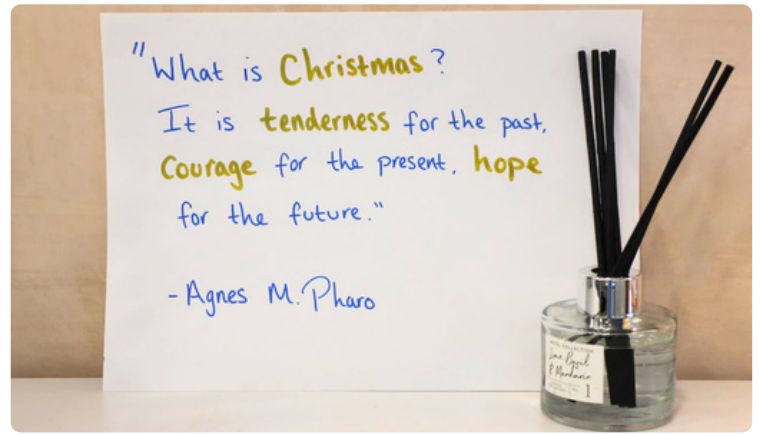 "What is Christmas?
It is tenderness for the past,
Courage for the present, hope
for the future."
- Agnes M. Pharo
HOTEL COLLECTION
Lime Basil
& Mandarin
1